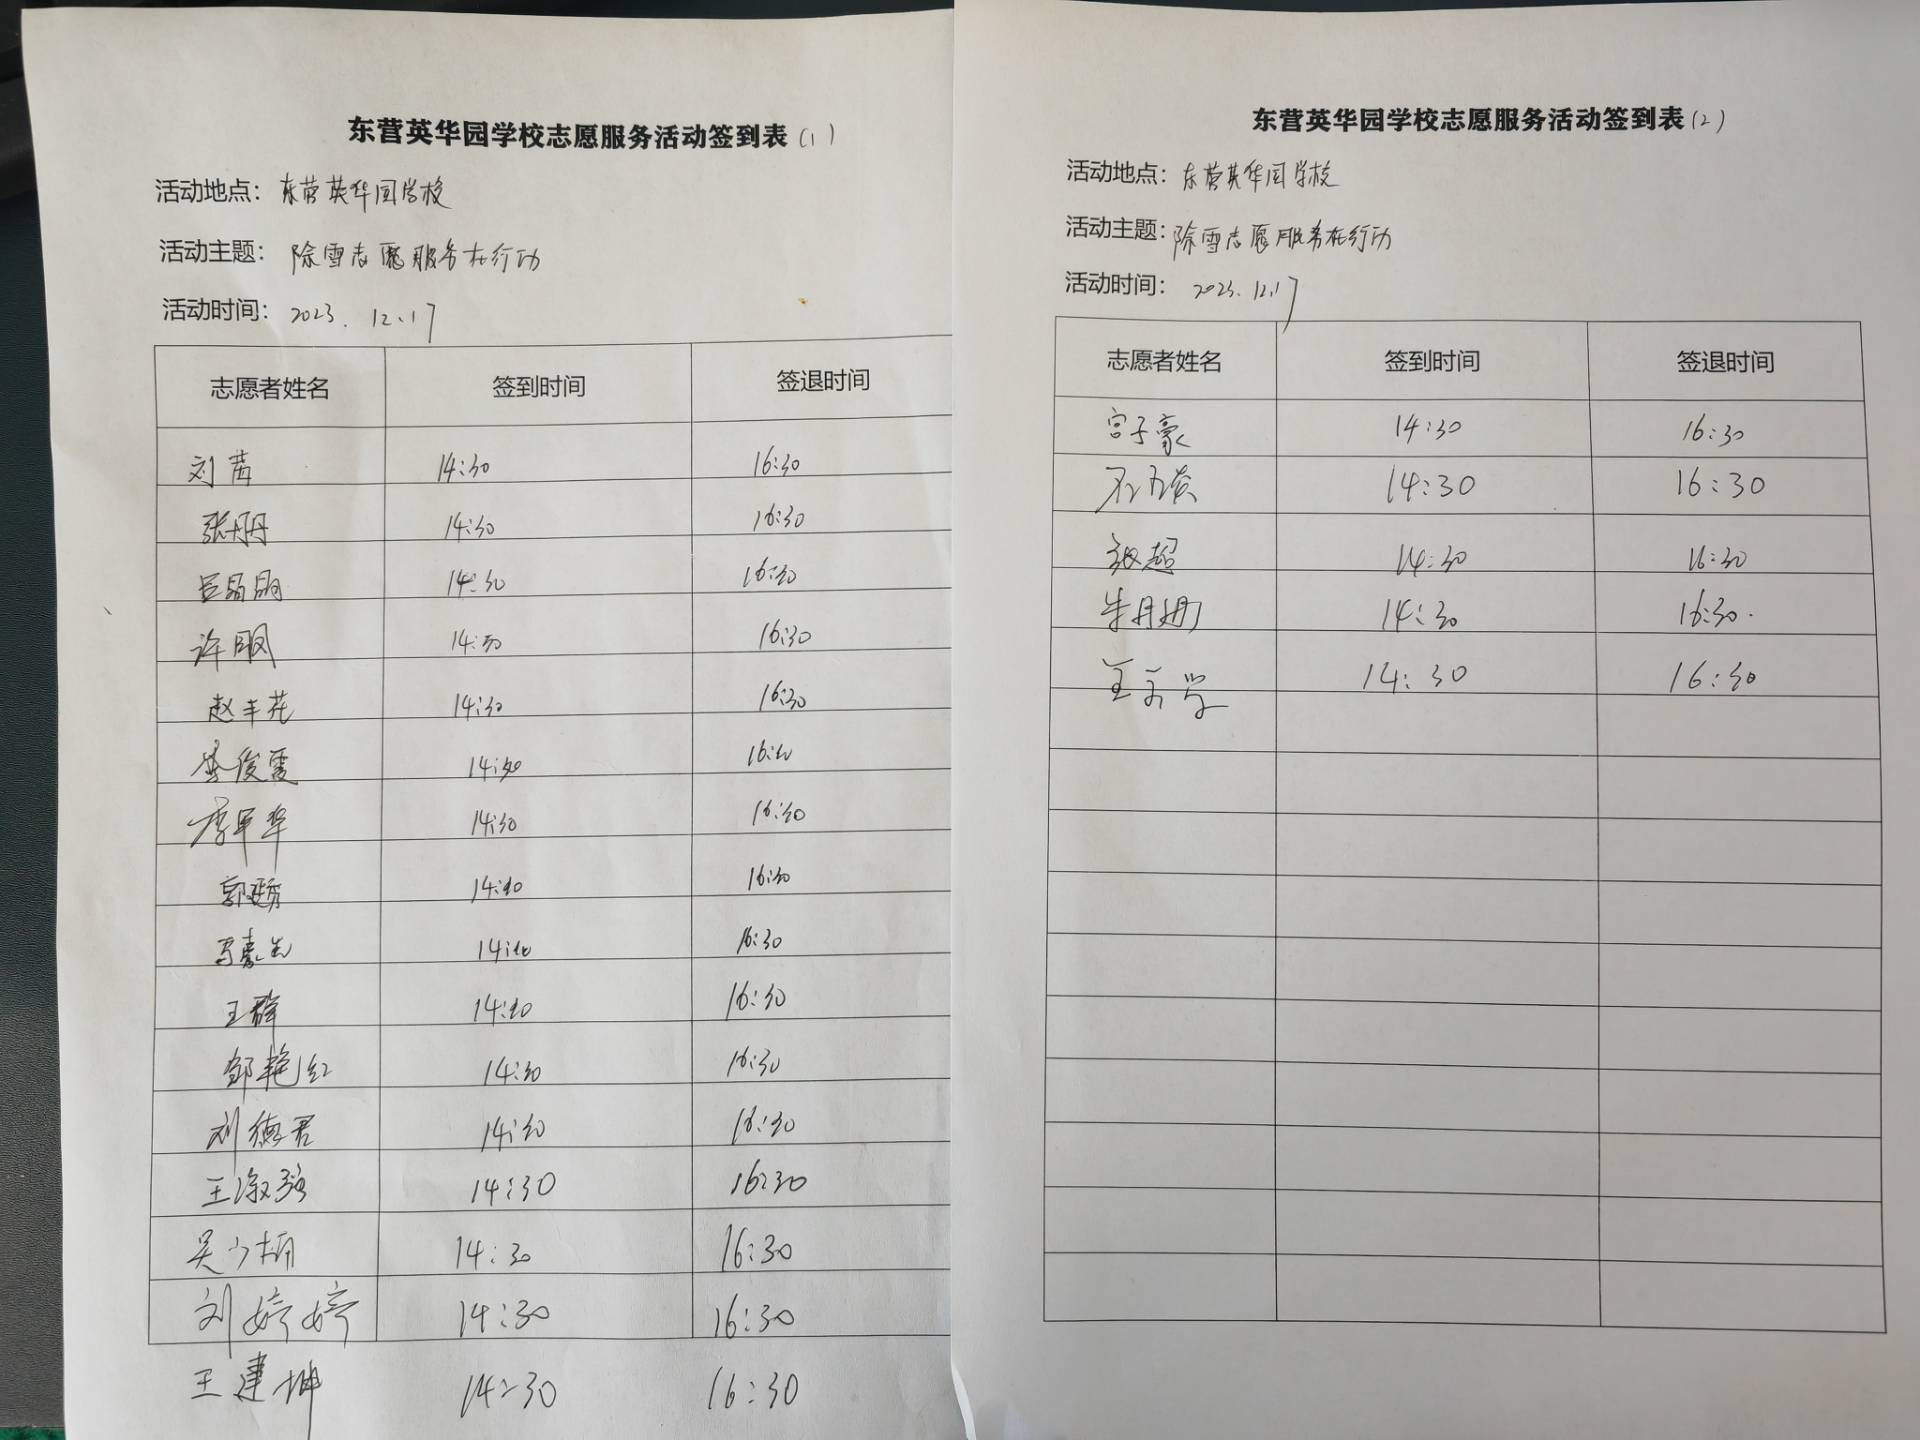 东营英华园学校志愿服务活动签到表(1)
活动地点：东营英华园学校
活动主题：除雪志愿服务在行动
活动时间：2023.12.17
志愿者姓名 签到时间 签退时间
刘茜 14:30 16:30
张丹丹 14:30 16:30
吕晶晶 14:30 16:30
许 14:30 16:30
赵丰花 14:30 16:30
俊霞 14:30 16:30
李军华 14:30 16:30
郭 14:30 16:30
14:30 16:30
王群 14:30 16:30
邹艳红 14:30 16:30
刘德君 14:30 16:30
王淑强 14:30 16:30
吴少楠 14:30 16:30
刘婷婷 14:30 16:30
王建坤 14:30 16:30
东营英华园学校志愿服务活动签到表(2)
活动地点：东营英华园学校
活动主题：除雪志愿服务在行动
活动时间：2023.12.17
志愿者姓名 签到时间 签退时间
宫子豪 14:30 16:30
14:30 16:30
张超 14:30 16:30
牛月 14:30 16:30.
王 14:30 16:30